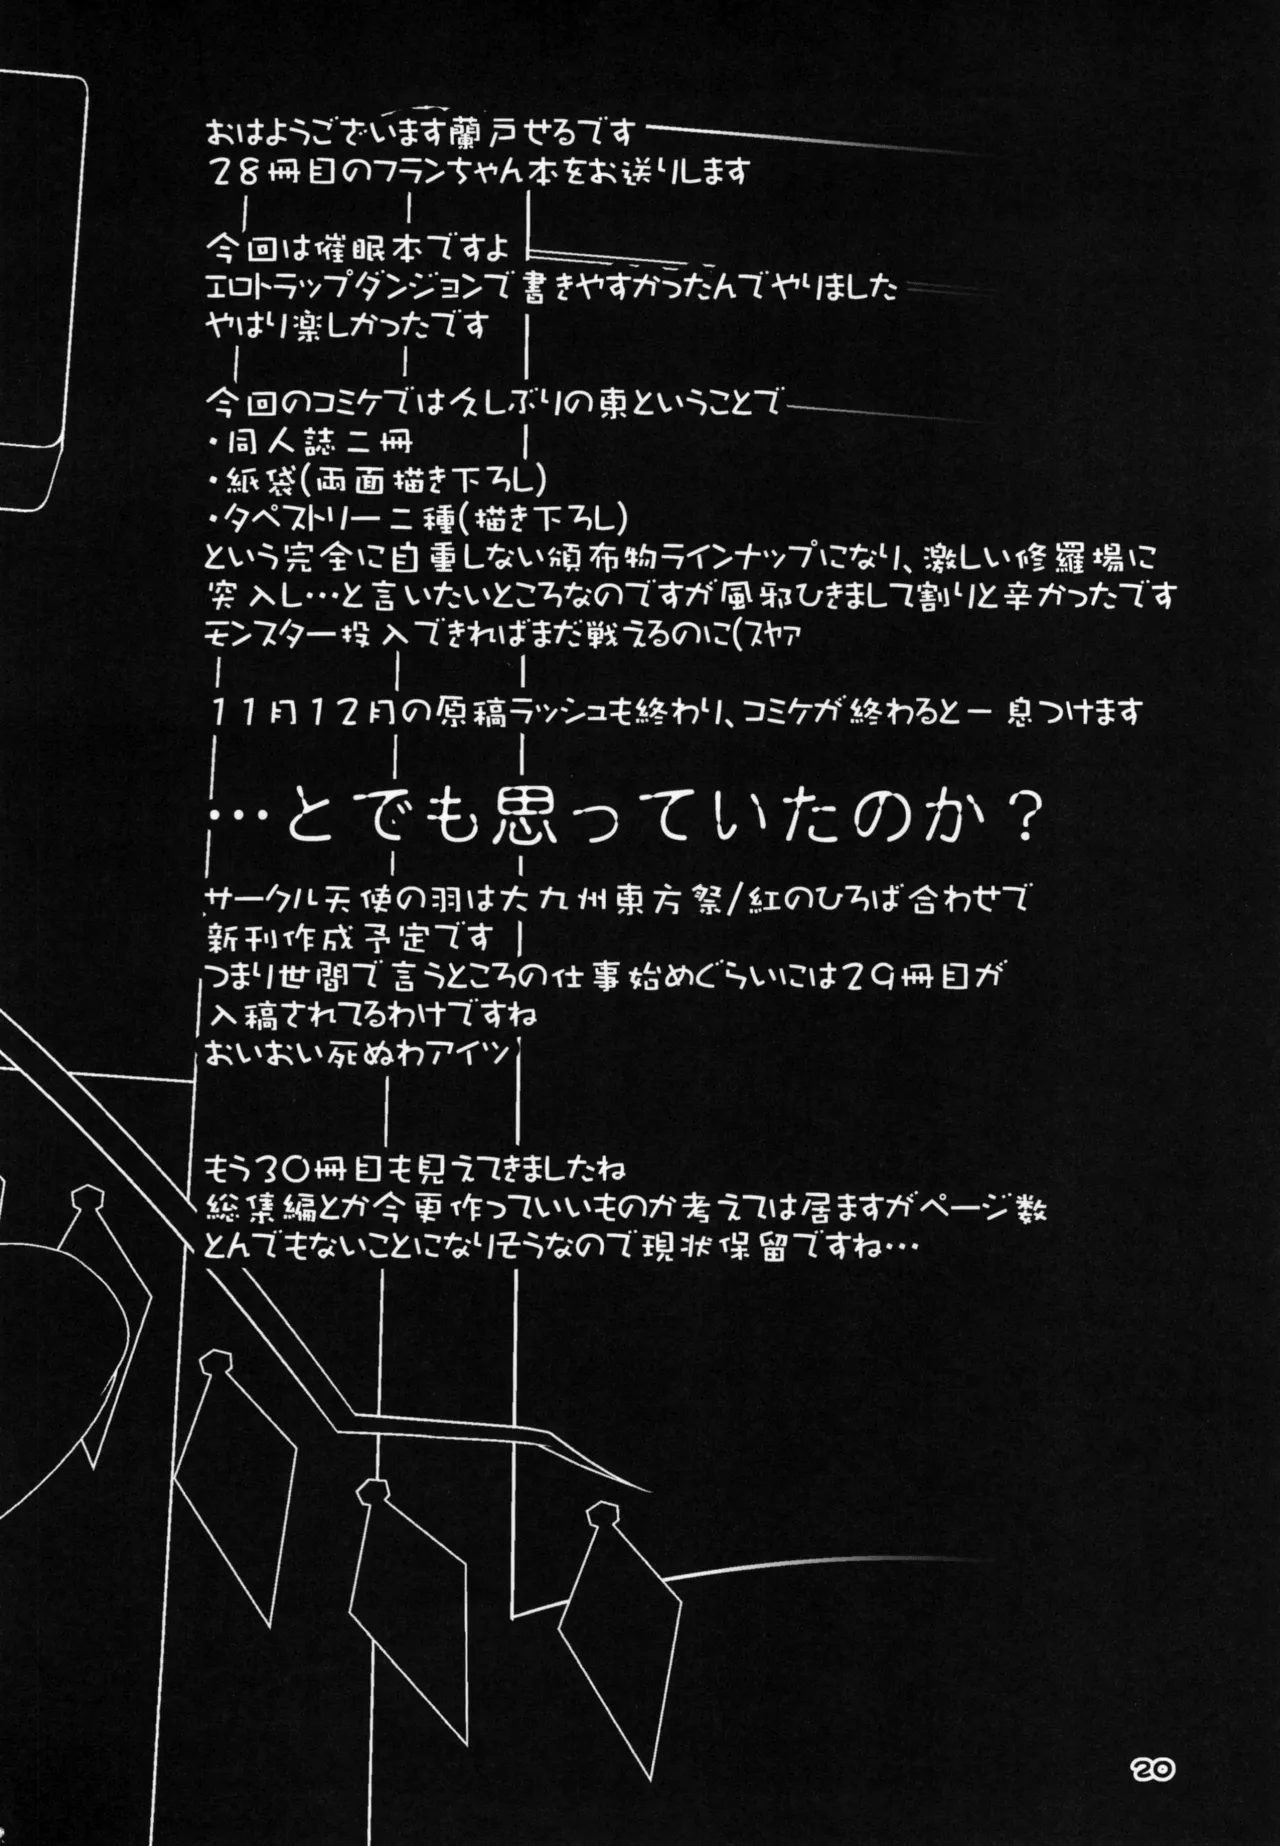 おはようございます蘭戸せるです
28冊目のフランちゃん本をお送りします
今回は催眠本ですよ
エロトラップダンジョンで書きやすかったんでやりました
やはり楽しかったです
今回のコミケでは久しぶりの東ということで
・同人誌二冊
・紙袋(両面描き下ろし)
・タペストリー二種(描き下ろし)
という完全に自重しない頒布物ラインナップになり、激しい修羅場に
突入し…と言いたいところなのですが風邪ひきまして割りと辛かったです
モンスター投入できればまだ戦えるのに(ｽﾔｧ
11月12月の原稿ラッシュも終わり、コミケが終わると一息つけます
…とでも思っていたのか？
サークル天使の羽は大九州東方祭/紅のひろば合わせで
新刊作成予定です
つまり世間で言うところの仕事始めぐらいには29冊目が
入稿されてるわけですね
おいおい死ぬわアイツ
もう30冊目も見えてきましたね
総集編とか今更作っていいものか考えては居ますがページ数
とんでもないことになりそうなので現状保留ですね…
20